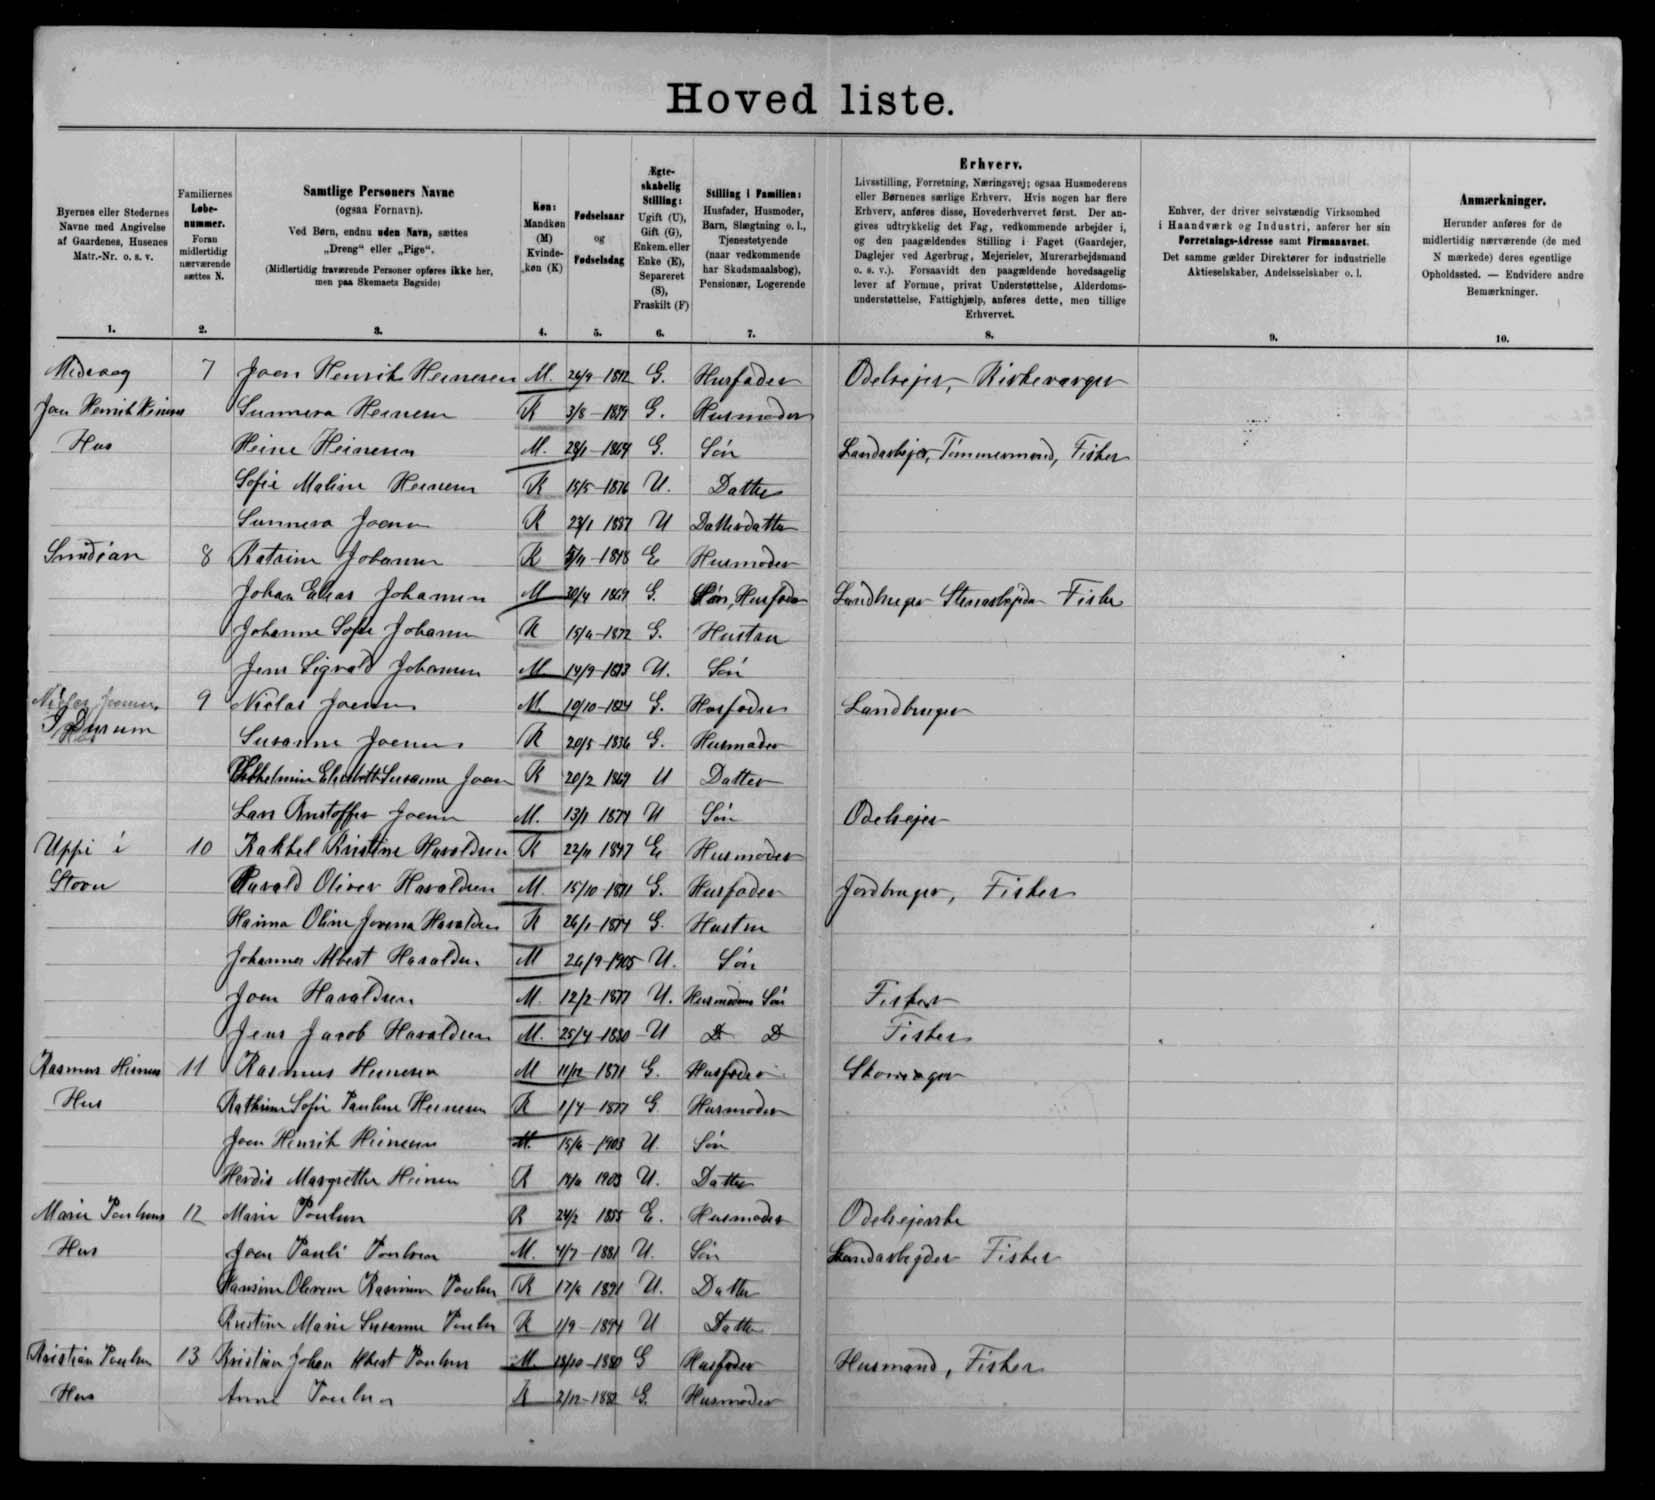 Hoved liste.
Byernes eller Stedernes Navne med Angivelse af Gaardenes, Husenes Matr.-Nr. o. s. v.
Familiernes Løbe-nummer. Foran midlertidig nærværende sættes N.
Samtlige Personers Navne (ogsaa Fornavn). Ved Børn, endnu uden Navn, sættes „Dreng“ eller „Pige“. (Midlertidig fraværende Personer opføres ikke her, men paa Skemaets Bagside)
Køn: Mandkøn (M) Kvinde-køn (K)
Fødselsaar og Fødselsdag
Ægte-skabelig Stilling: Ugift (U), Gift (G), Enkem. eller Enke (E), Separeret (S), Fraskilt (F)
Stilling i Familien: Husfader, Husmoder, Barn, Slægtning o. l., Tjenestetyende (naar vedkommende har Skudsmaalsbog), Pensionær, Logerende
Erhverv. Livsstilling, Forretning, Næringsvej; ogsaa Husmoderens eller Børnenes særlige Erhverv. Hvis nogen har flere Erhverv, anføres disse, Hovederhvervet først. Der angives udtrykkelig det Fag, vedkommende arbejder i, og den paagældendes Stilling i Faget (Gaardejer, Daglejer ved Agerbrug, Mejerielev, Murerarbejdsmand o. s. v.). Forsaavidt den paagældende hovedsagelig lever af Formue, privat Understøttelse, Alderdoms-understøttelse, Fattighjælp, anføres dette, men tillige Erhvervet.
Enhver, der driver selvstændig Virksomhed i Haandværk og Industri, anfører her sin Forretnings-Adresse samt Firmanavnet. Det samme gælder Direktører for industrielle Aktieselskaber, Andelsselskaber o. l.
Anmærkninger. Herunder anføres for de midlertidig nærværende (de med N mærkede) deres egentlige Opholdssted. — Endvidere andre Bemærkninger.
1. 2. 3. 4. 5. 6. 7. 8. 9. 10.
7 Joen Henrik Heinesen M. 26/9-1842 G. Husfader Odelsejer,
Sunneva Heinesen K 3/8-1839 G. Husmoder
Hus Heine Heinesen M. G. Søn Tømmermand, Fisker
Sofie Maline Heinesen K 15/5-1876 U. Datter
Sunneva Joensen K 23/1 1887 U Datterdatter
8 Katrine Johansen K E Husmoder
Johan Elias Johansen M 1869 G. Søn, Husfader Fisker
Johanne Sofie Johansen K 1872 G. Hustru
Jens Sigvald Johansen M 14/9-1873 U. Søn
Niclas Joensens 9 Niclas Joensen M 10/10-1824 G. Husfader Landbruger
Susanne Joensen K 20/5-1836 G. Husmoder
Elisabeth Susanne Joensen K 20/2 1869 U Datter
Lars Kristoffer Joensen M. 1874 U Søn Odelsejer
Uppi í 10 Rakkel Kristine Haraldsen K 22/11 1847 E Husmoder
Stovu Harald Oliver Haraldsen M. 15/10-1871 G. Husfader Jordbruger, Fisker
Hanna Oline Haraldsen K 26/1-1874 G. Hustru
Johannes Albert Haraldsen M 26/9-1905 U. Søn
Joen Haraldsen M. 12/2-1877 U. Husmoderens Søn Fisker
Jens Jacob Haraldsen M. 25/4-1880 U D D Fisker
Rasmus Heinesens 11 Rasmus Heinesen M 11/12 1871 G. Husfader
Hus Kathrine Sofie Pauline Heinesen K 1/4-1877 G Husmoder
Joen Henrik Heinesen M. 1903 U. Søn
Herdis Margrethe Heinesen K U. Datter
Marie Poulsens 12 Marie Poulsen K 24/2 1855 E. Husmoder Odelsejerske
Hus Joen Pauli Poulsen M. 4/7-1881 U. Søn Landarbejder Fisker
Poulsen K 1891 U. Datter
Kristine Marie Susanne Poulsen K 1/9-1894 U Datter
Kristian Poulsens 13 Kristian Johan Albert Poulsen M 18/10-1880 G Husfader Husmand, Fisker
Hus Anne Poulsen K 2/12-1882 G. Husmoder